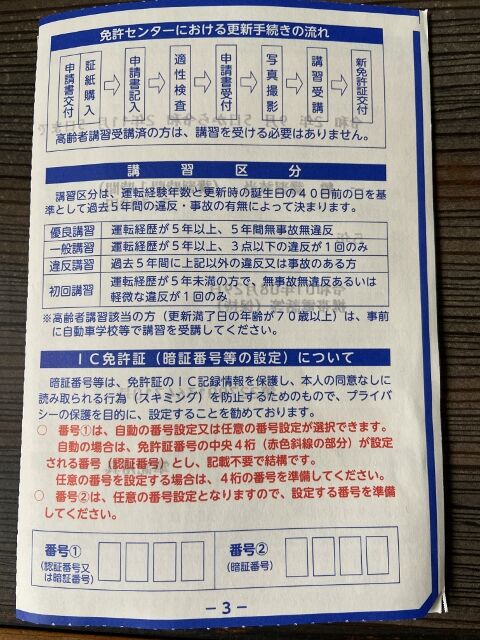 免許センターにおける更新手続きの流れ
申請書交付
証紙購入
申請書記入
適性検査
申請書受付
写真撮影
講習受講
新免許証交付
高齢者講習受講済の方は、講習を受ける必要はありません。
講習区分
講習区分は、運転経験年数と更新時の誕生日の40日前の日を基
準として過去5年間の違反・事故の有無によって決まります。
優良講習 運転経歴が5年以上、5年間無事故無違反
一般講習 運転経歴が5年以上、3点以下の違反が1回のみ
違反講習 過去5年間に上記以外の違反又は事故のある方
初回講習 運転経歴が5年未満の方で、無事故無違反あるいは
軽微な違反が1回のみ
※高齢者講習該当の方(更新満了日の年齢が70歳以上)は、事前
に自動車学校等で講習を受講してください。
IC免許証(暗証番号等の設定)について
暗証番号等は、免許証のIC記録情報を保護し、本人の同意なしに
読み取られる行為(スキミング)を防止するためのもので、プライバ
シーの保護を目的に、設定することを勧めております。
○ 番号①は、自動の番号設定又は任意の番号設定が選択できます。
自動の場合は、免許証番号の中央4桁(赤色斜線の部分)が設定
される番号(認証番号)とし、記載不要で結構です。
任意の番号設定する場合は、4桁の番号を準備してください。
○ 番号②は、任意の番号設定となりますので、設定する番号を準備
してください。
番号①
(認証番号又
は暗証番号)
番号②
(暗証番号)
-3-